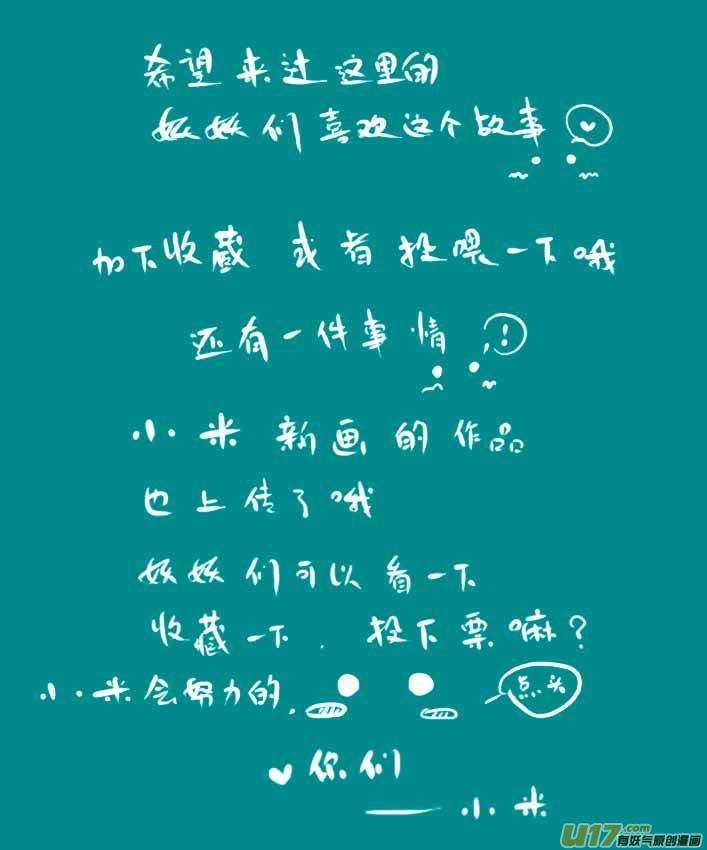 希望来过这里的
妖妖们喜欢这个故事
加下收藏 或者投喂一下哦
还有一件事情 ,!
小米新画的作品
也上传了哦
妖妖们可以看一下
收藏一下.投下票嘛?
小米会努力的.
点头
♥你们
——小米
U17.com
有妖气原创漫画